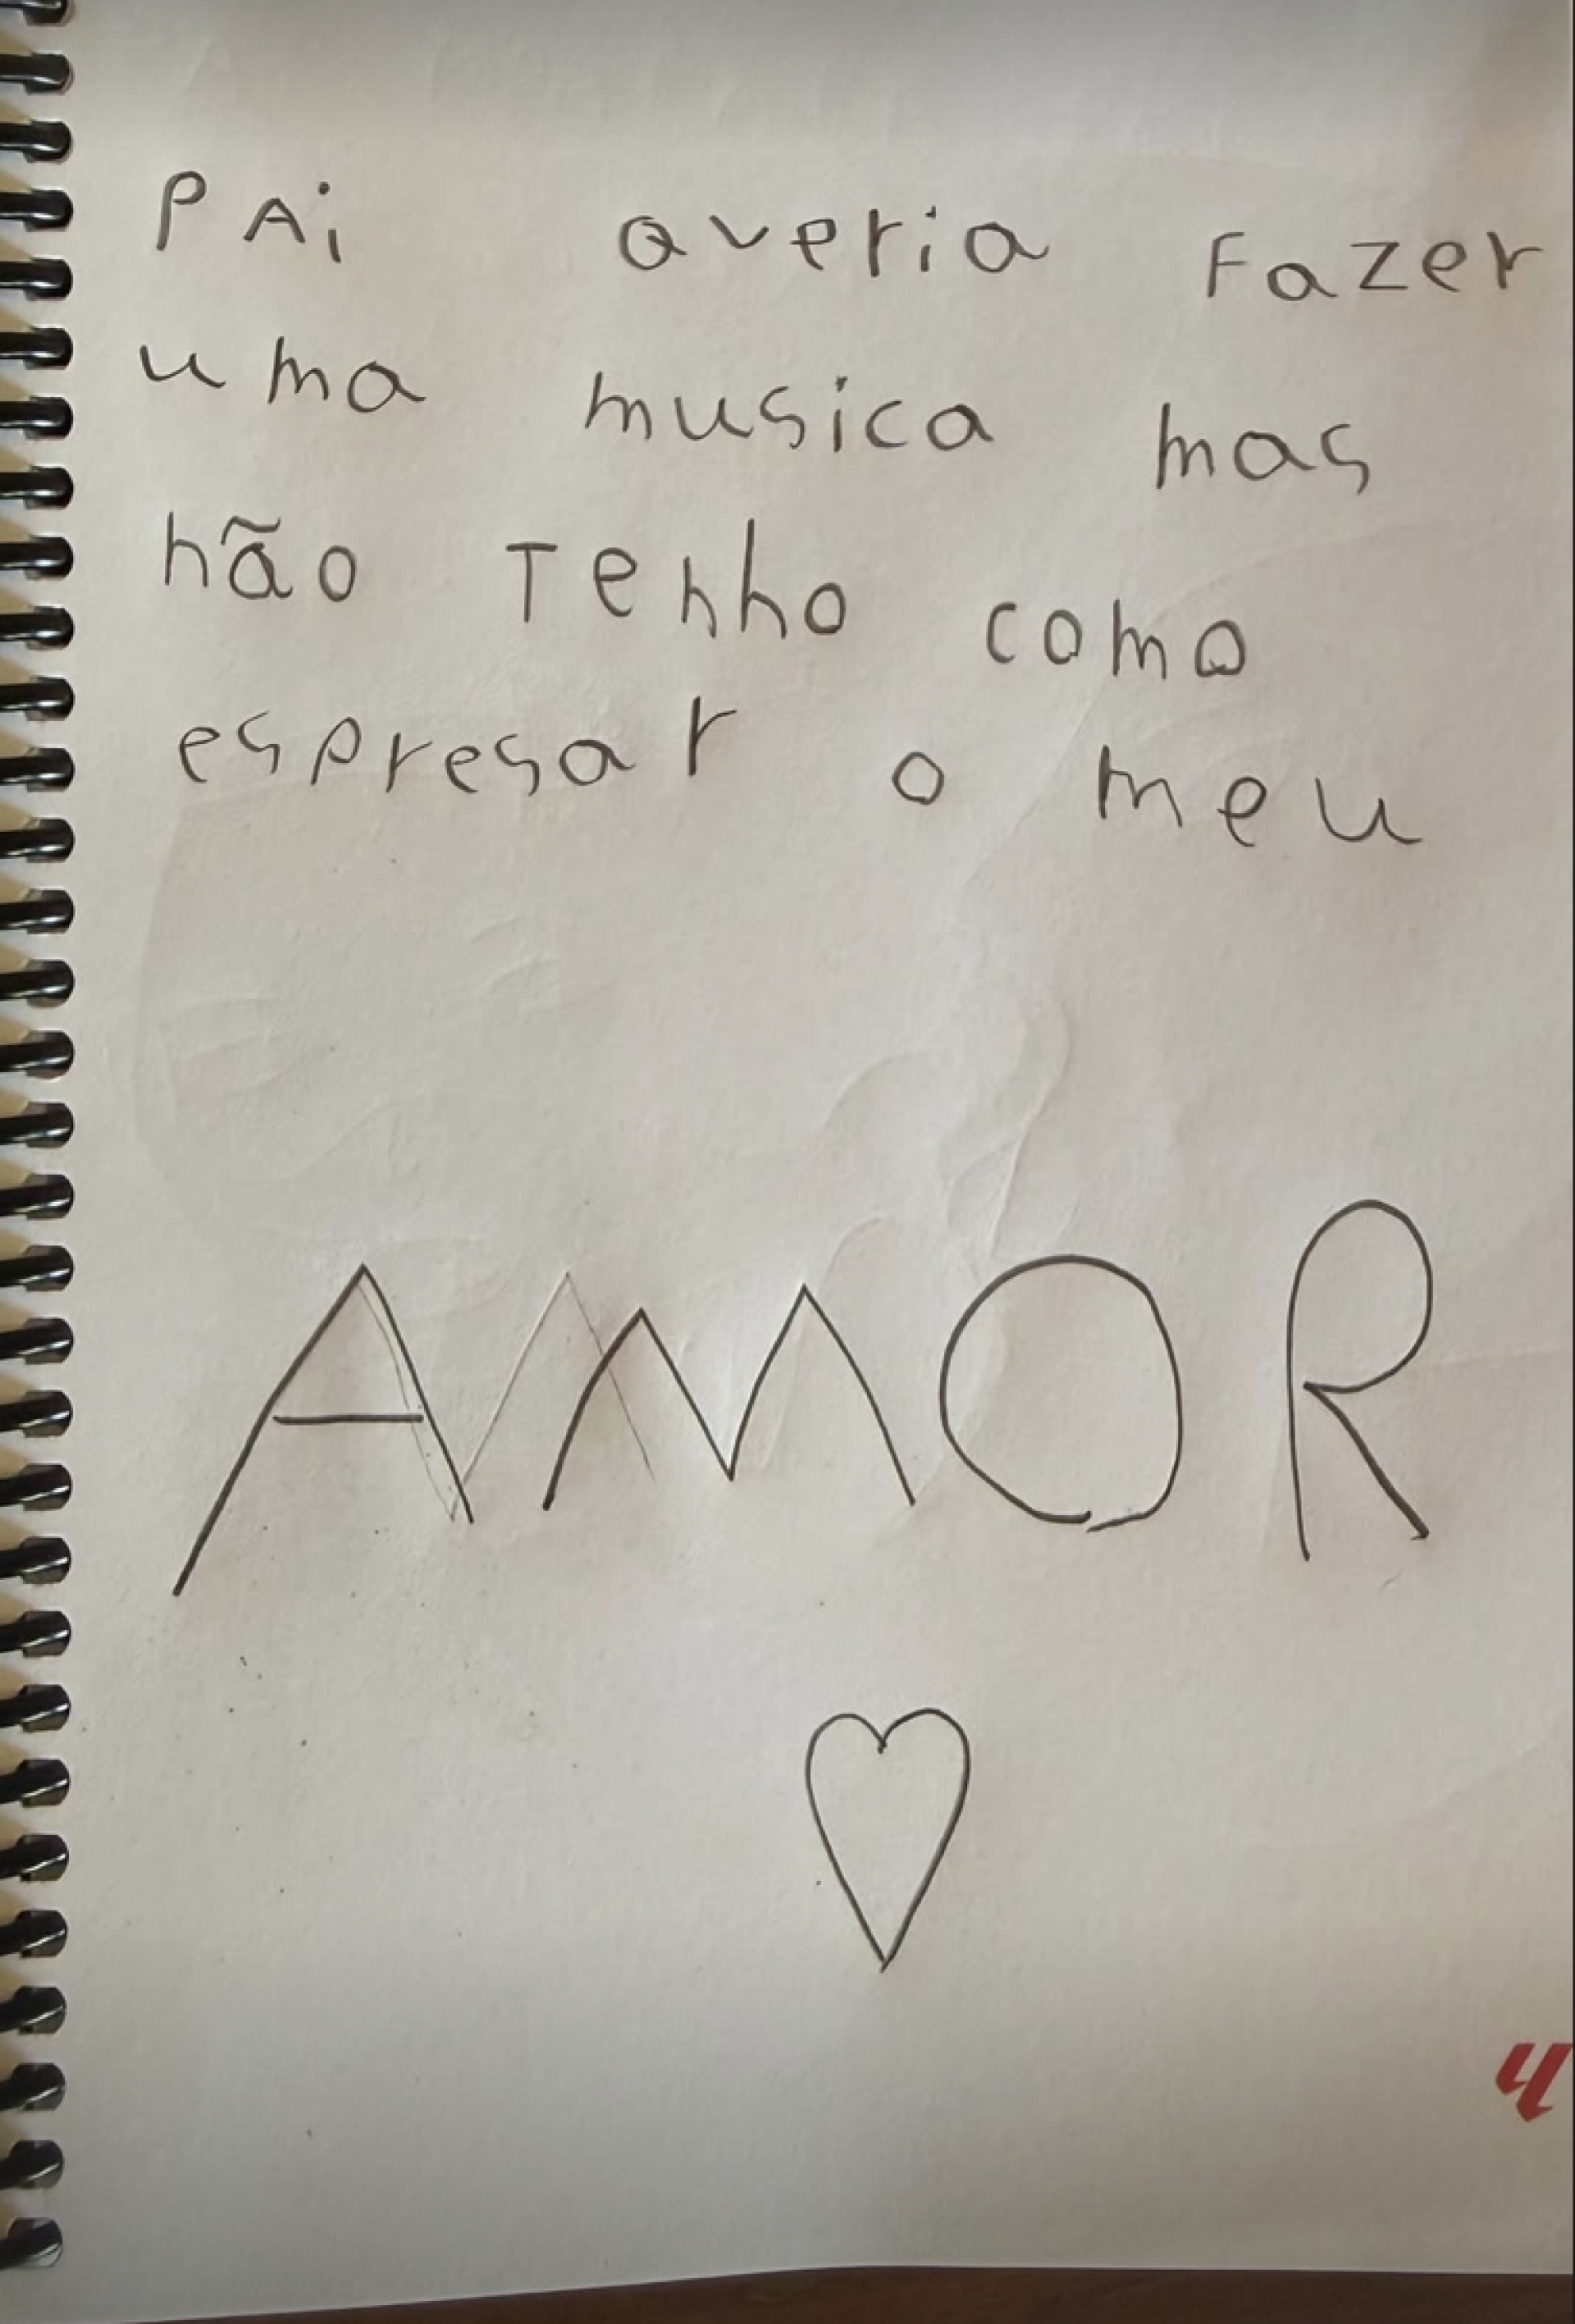 PAi Queria Fazer
uma musica mas
não Tenho como
espresar o meu
AMOR